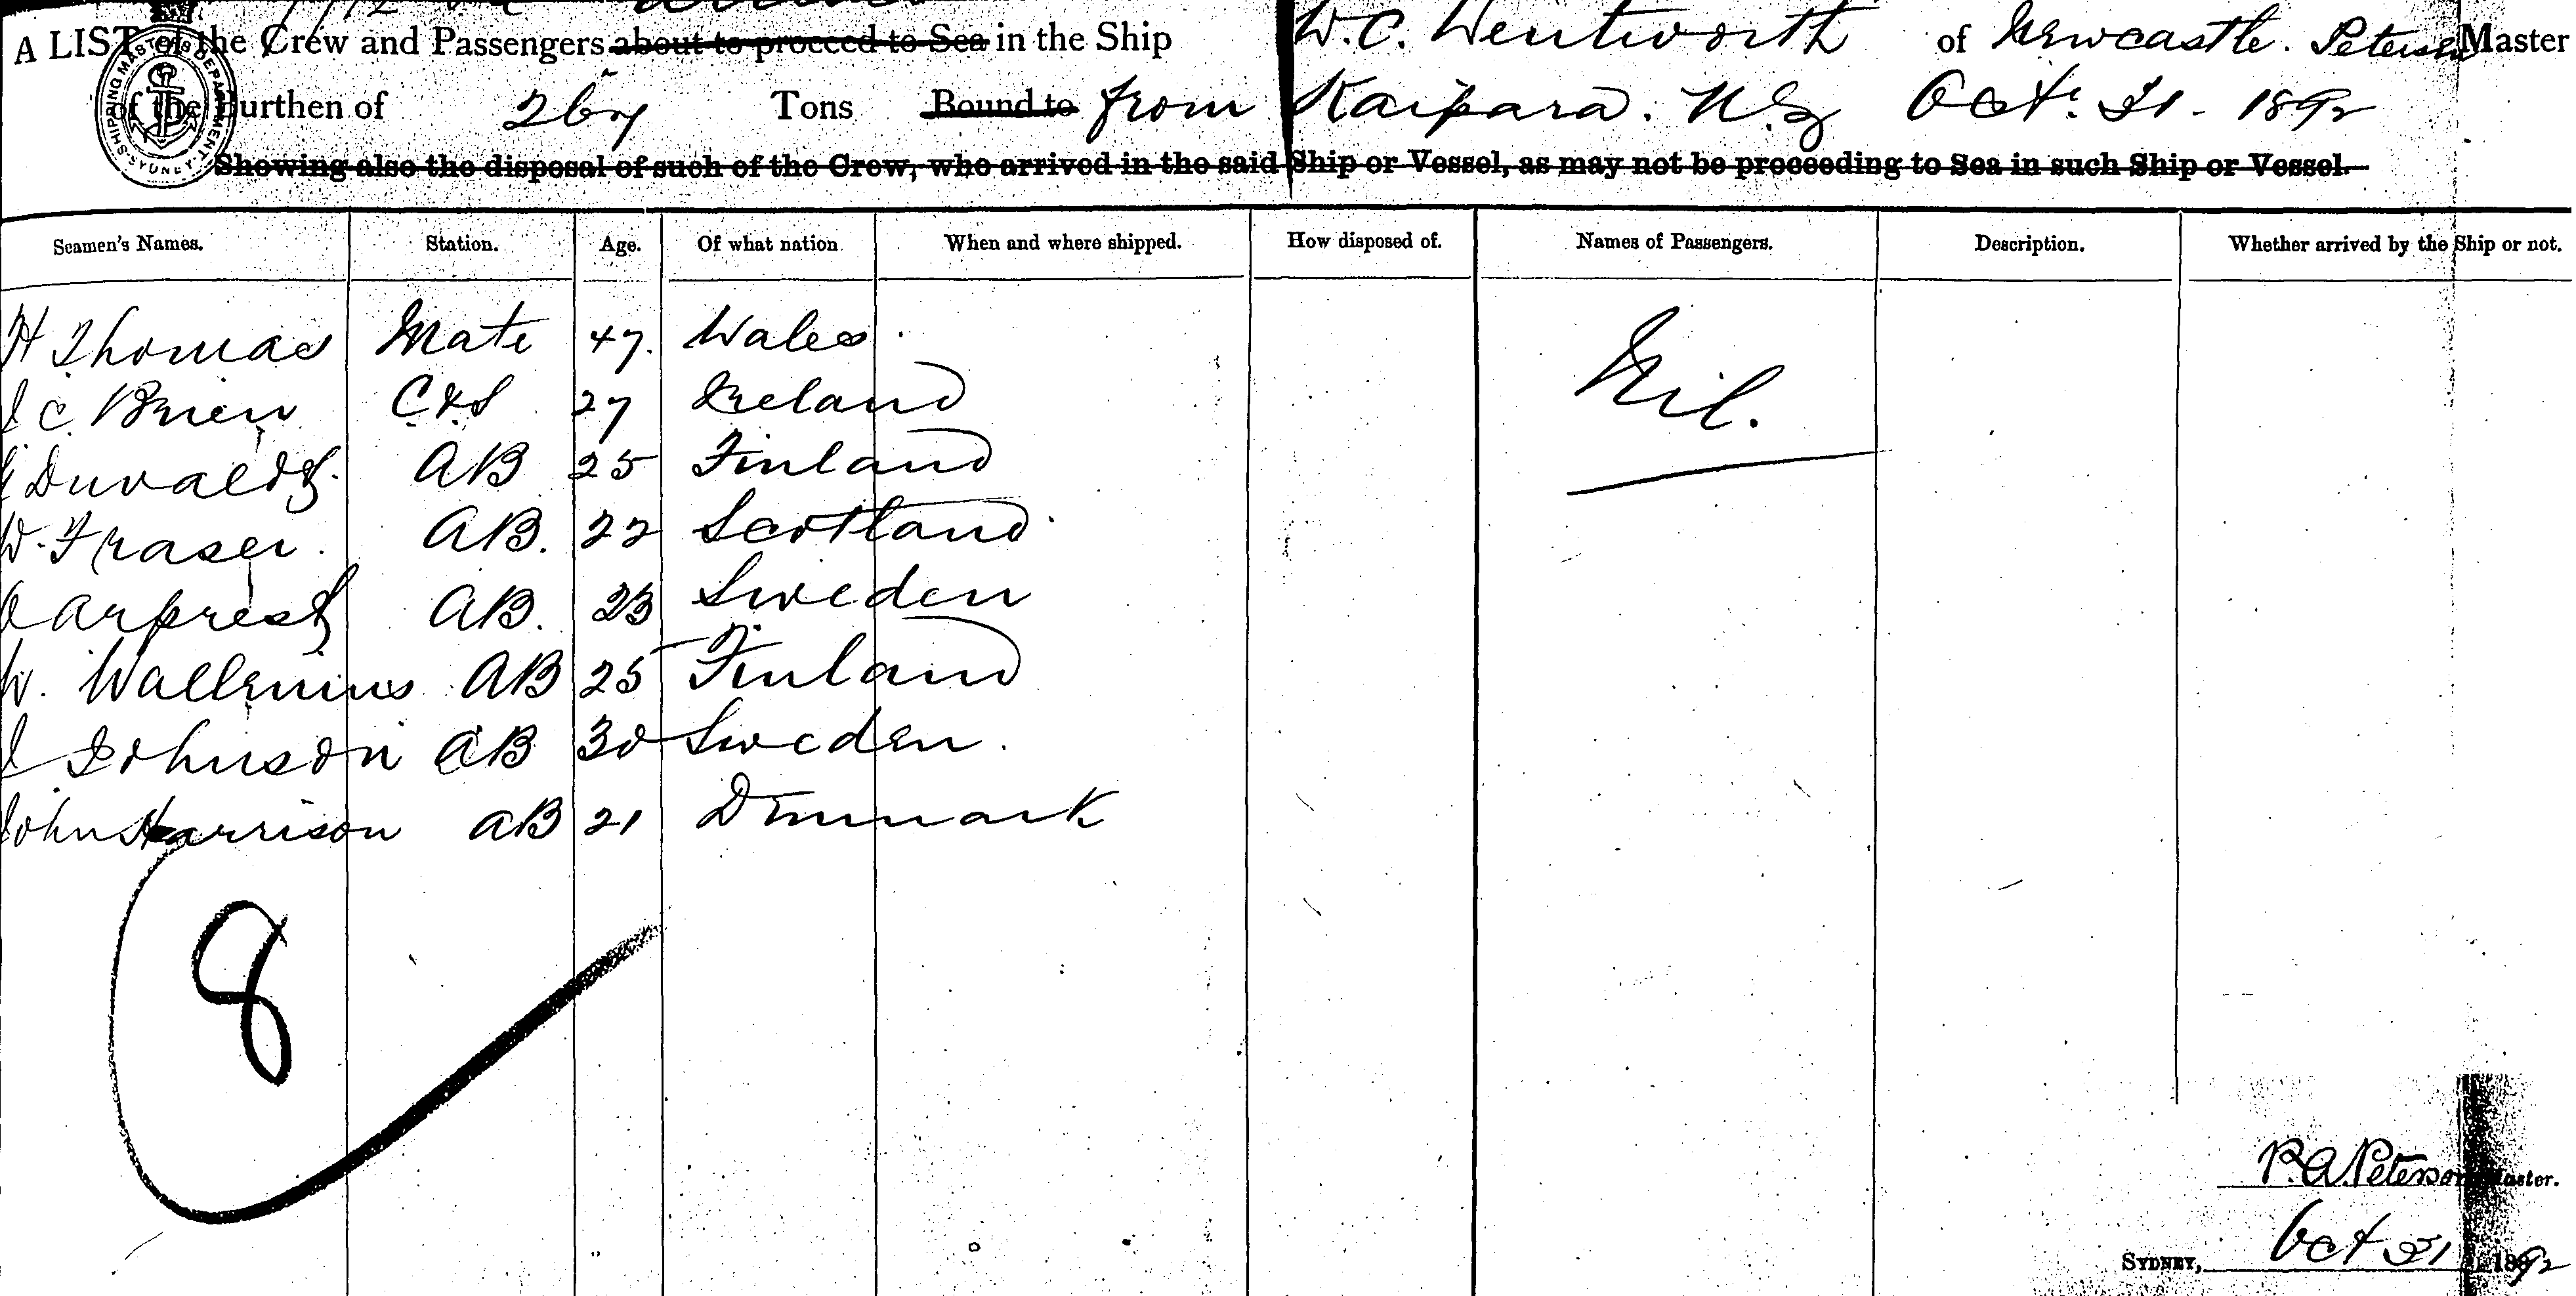 A LIST of the Crew and Passengers about to proceed to Sea in the Ship W. C. Wentworth of Newcastle. Peterson Master
of the Burthen of 267 Tons Bound to from Kaipara. N.Z Oct. 31. 1892
Showing also the disposal of such of the Crew, who arrived in the said Ship or Vessel, as may not be proceeding to Sea in such Ship or Vessel.
SHIPPING MASTER'S DEPARTMENT SYDNEY
Seamen's Names. Station. Age. Of what nation When and where shipped. How disposed of. Names of Passengers. Description. Whether arrived by the Ship or not.
H Thomas Mate 47. Wales Nil.
J C Brien C & S 27 Ireland
Duvaldt. AB 25 Finland
W. Fraser. AB. 22 Scotland
O Arprest AB. 23 Sweden
W. Wallenius AB 25 Finland
J Johnson AB 30 Sweden.
John Harrison AB 21 Denmark
8
P. A. Peterson Master.
SYDNEY, Oct 31 1892